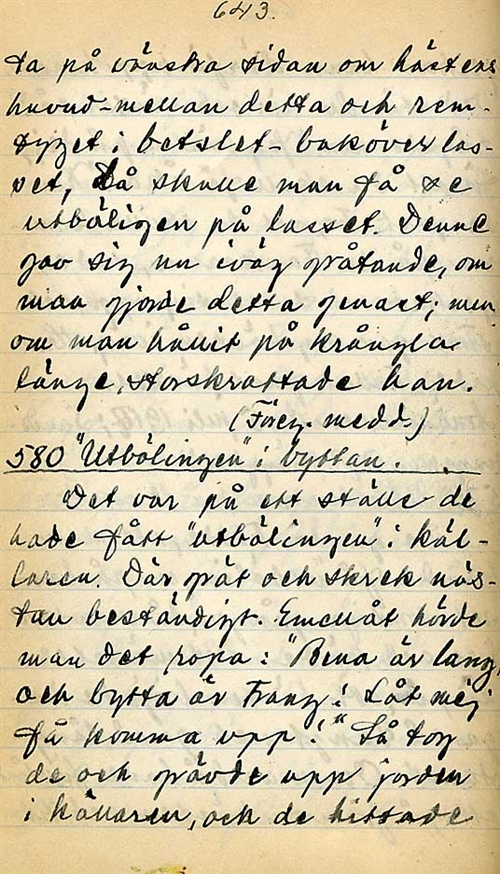 643.
ta på vänstra sidan om hästens
huvud-mellan detta och rem-
tyget i betslet-baköver las-
set, då skulle man få se
utbölingen på lasset. Denne
gav sig nu iväg gråtande, om
man gjorde detta genast; men
om man hållit på krångla
länge, storskrattade han.
(Föreg. medd.)
580 "Utbölingen" i byttan.
Det var på ett ställe de
hade fått "utbölingen" i käl-
laren. Där grät och skrek näs-
tan beständigt. Emellåt hörde
man det ropa: "Bena är lang,
och bytta är trang! Låt mej
få komma upp!" Så tog
de och grävde upp jorden
i källaren, och de hittade